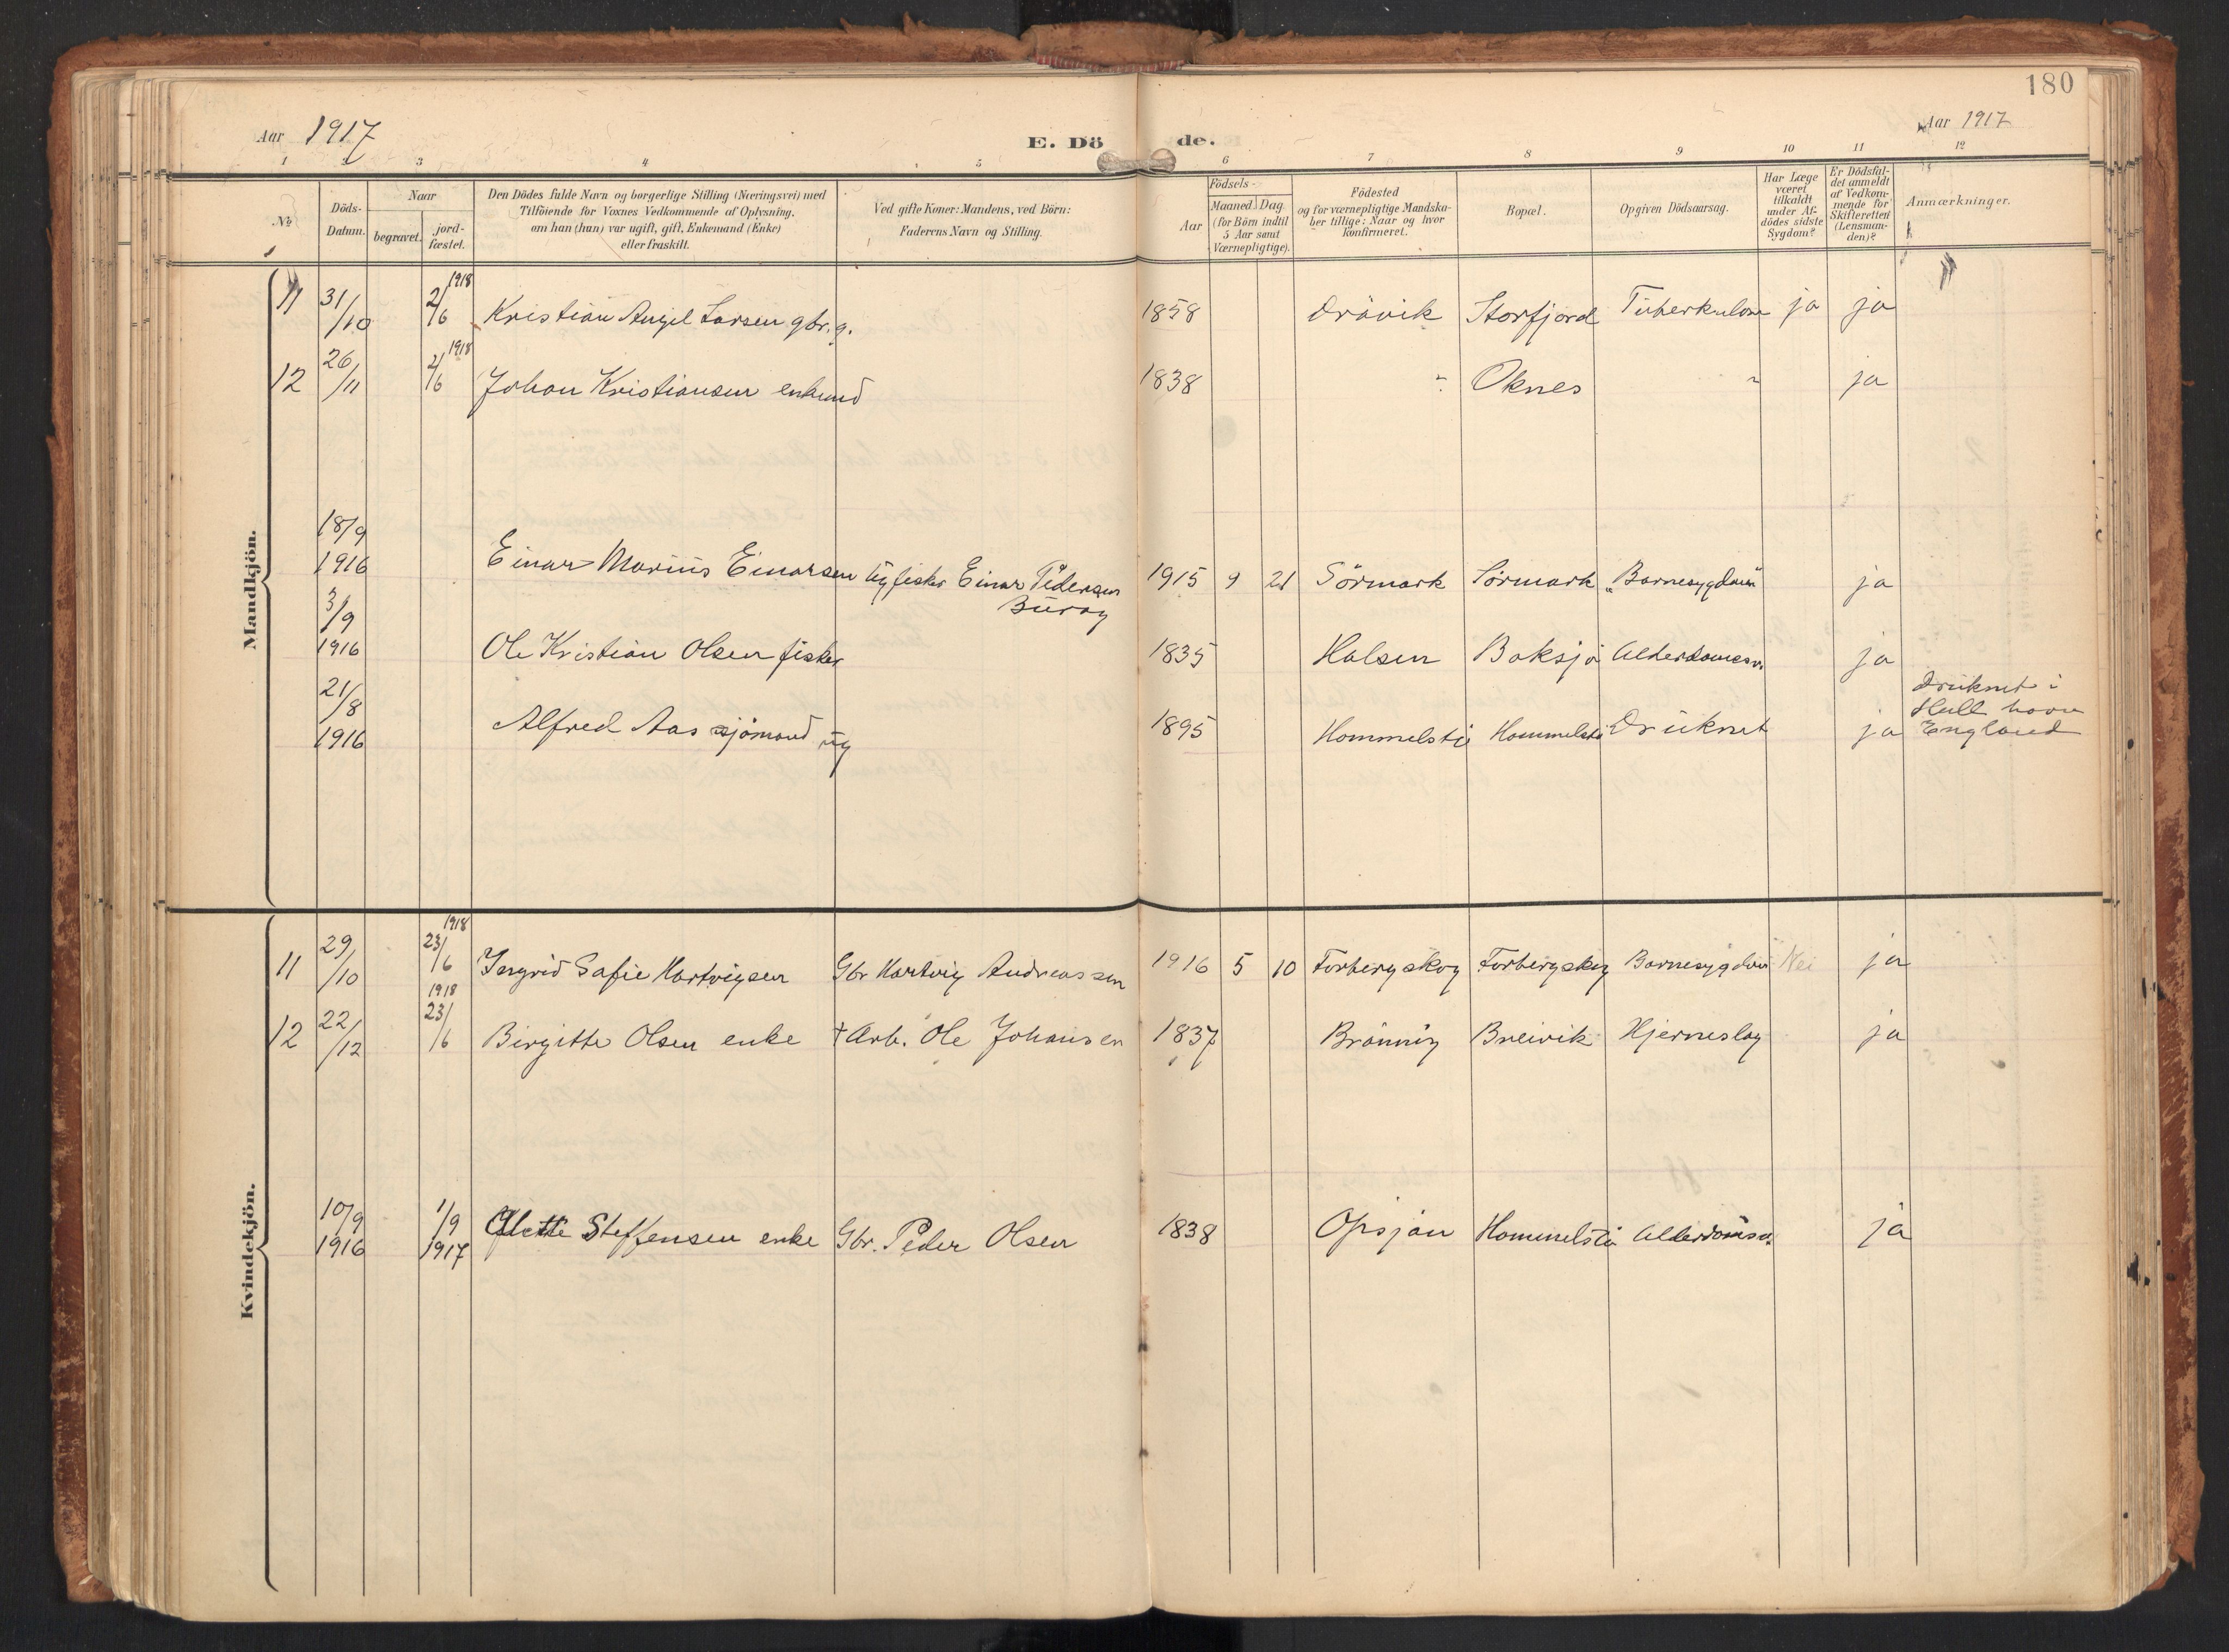 180
Aar 1917
E. Döde.
Aar 1917
1 2 3 4 5 6 7 8 9 10 11 12
No
Döds-Datum.
Naar
begravet.
jord-fæstet.
Den Dödes fulde Navn og borgerlige Stilling (Næringsvei) med
Tilföiende for Voxnes Vedkommende af Oplysning,
om han (hun) var ugift, gift, Enkemand (Enke)
eller fraskilt.
Ved gifte Koner: Mandens, ved Börn:
Faderens Navn og Stilling.
Födsels-
Aar
Maaned. Dag.
(for Börn indtil
5 Aar samt
Værnepligtige).
Födested
og for værnepligtige Mandska-
ber tillige: Naar og hvor
konfirmeret.
Bopæl.
Opgiven Dödsaarsag.
Har Læge
været
tilkaldt
under Af-
dödes sidste
Sygdom?
Er Dödsfal-
det anmeldt
af Vedkom-
mende for
Skifteretten
(Lensman-
den)?
Anmærkninger.
Mandkjön.
11 31/10 2/6 1918 Kristian Angel Larsen gbr. g. 1858 Drövik Storfjord Tuberkulose ja ja
12 26/11 2/6 1918 Johan Kristiansen enkmd 1838 " Oknes " ja
18/9 1916 Einar Marius Einarsen ug fisker Einar Pedersen 1915 9 21 Sörmark Sörmark "Barnesygdom" ja
Buröy
3/9 1916 Ole Kristian Olsen fisker 1835 Halsen Boksjö Alderdomssv. ja
21/8 1916 Alfred Aas sjömand ug 1895 Hommelstö Hommelstö Druknet ja druknet i
Hull havn
England
Kvindekjön.
11 29/10 23/6 1918 Ingrid Safie Hartvigsen Gbr Hartvig Andreassen 1916 5 10 Forbergskog Forbergskog Barnesygdom Nei ja
12 22/12 23/6 1918 Birgitte Olsen enke † Arb. Ole Johansen 1837 Brönnöy Breivik Hjerneslag ja
10/9 1916 1/9 1917 Steffensen enke Gbr. Peder Olsen 1838 Opsjöen Hommelstö Alderdomssv. ja